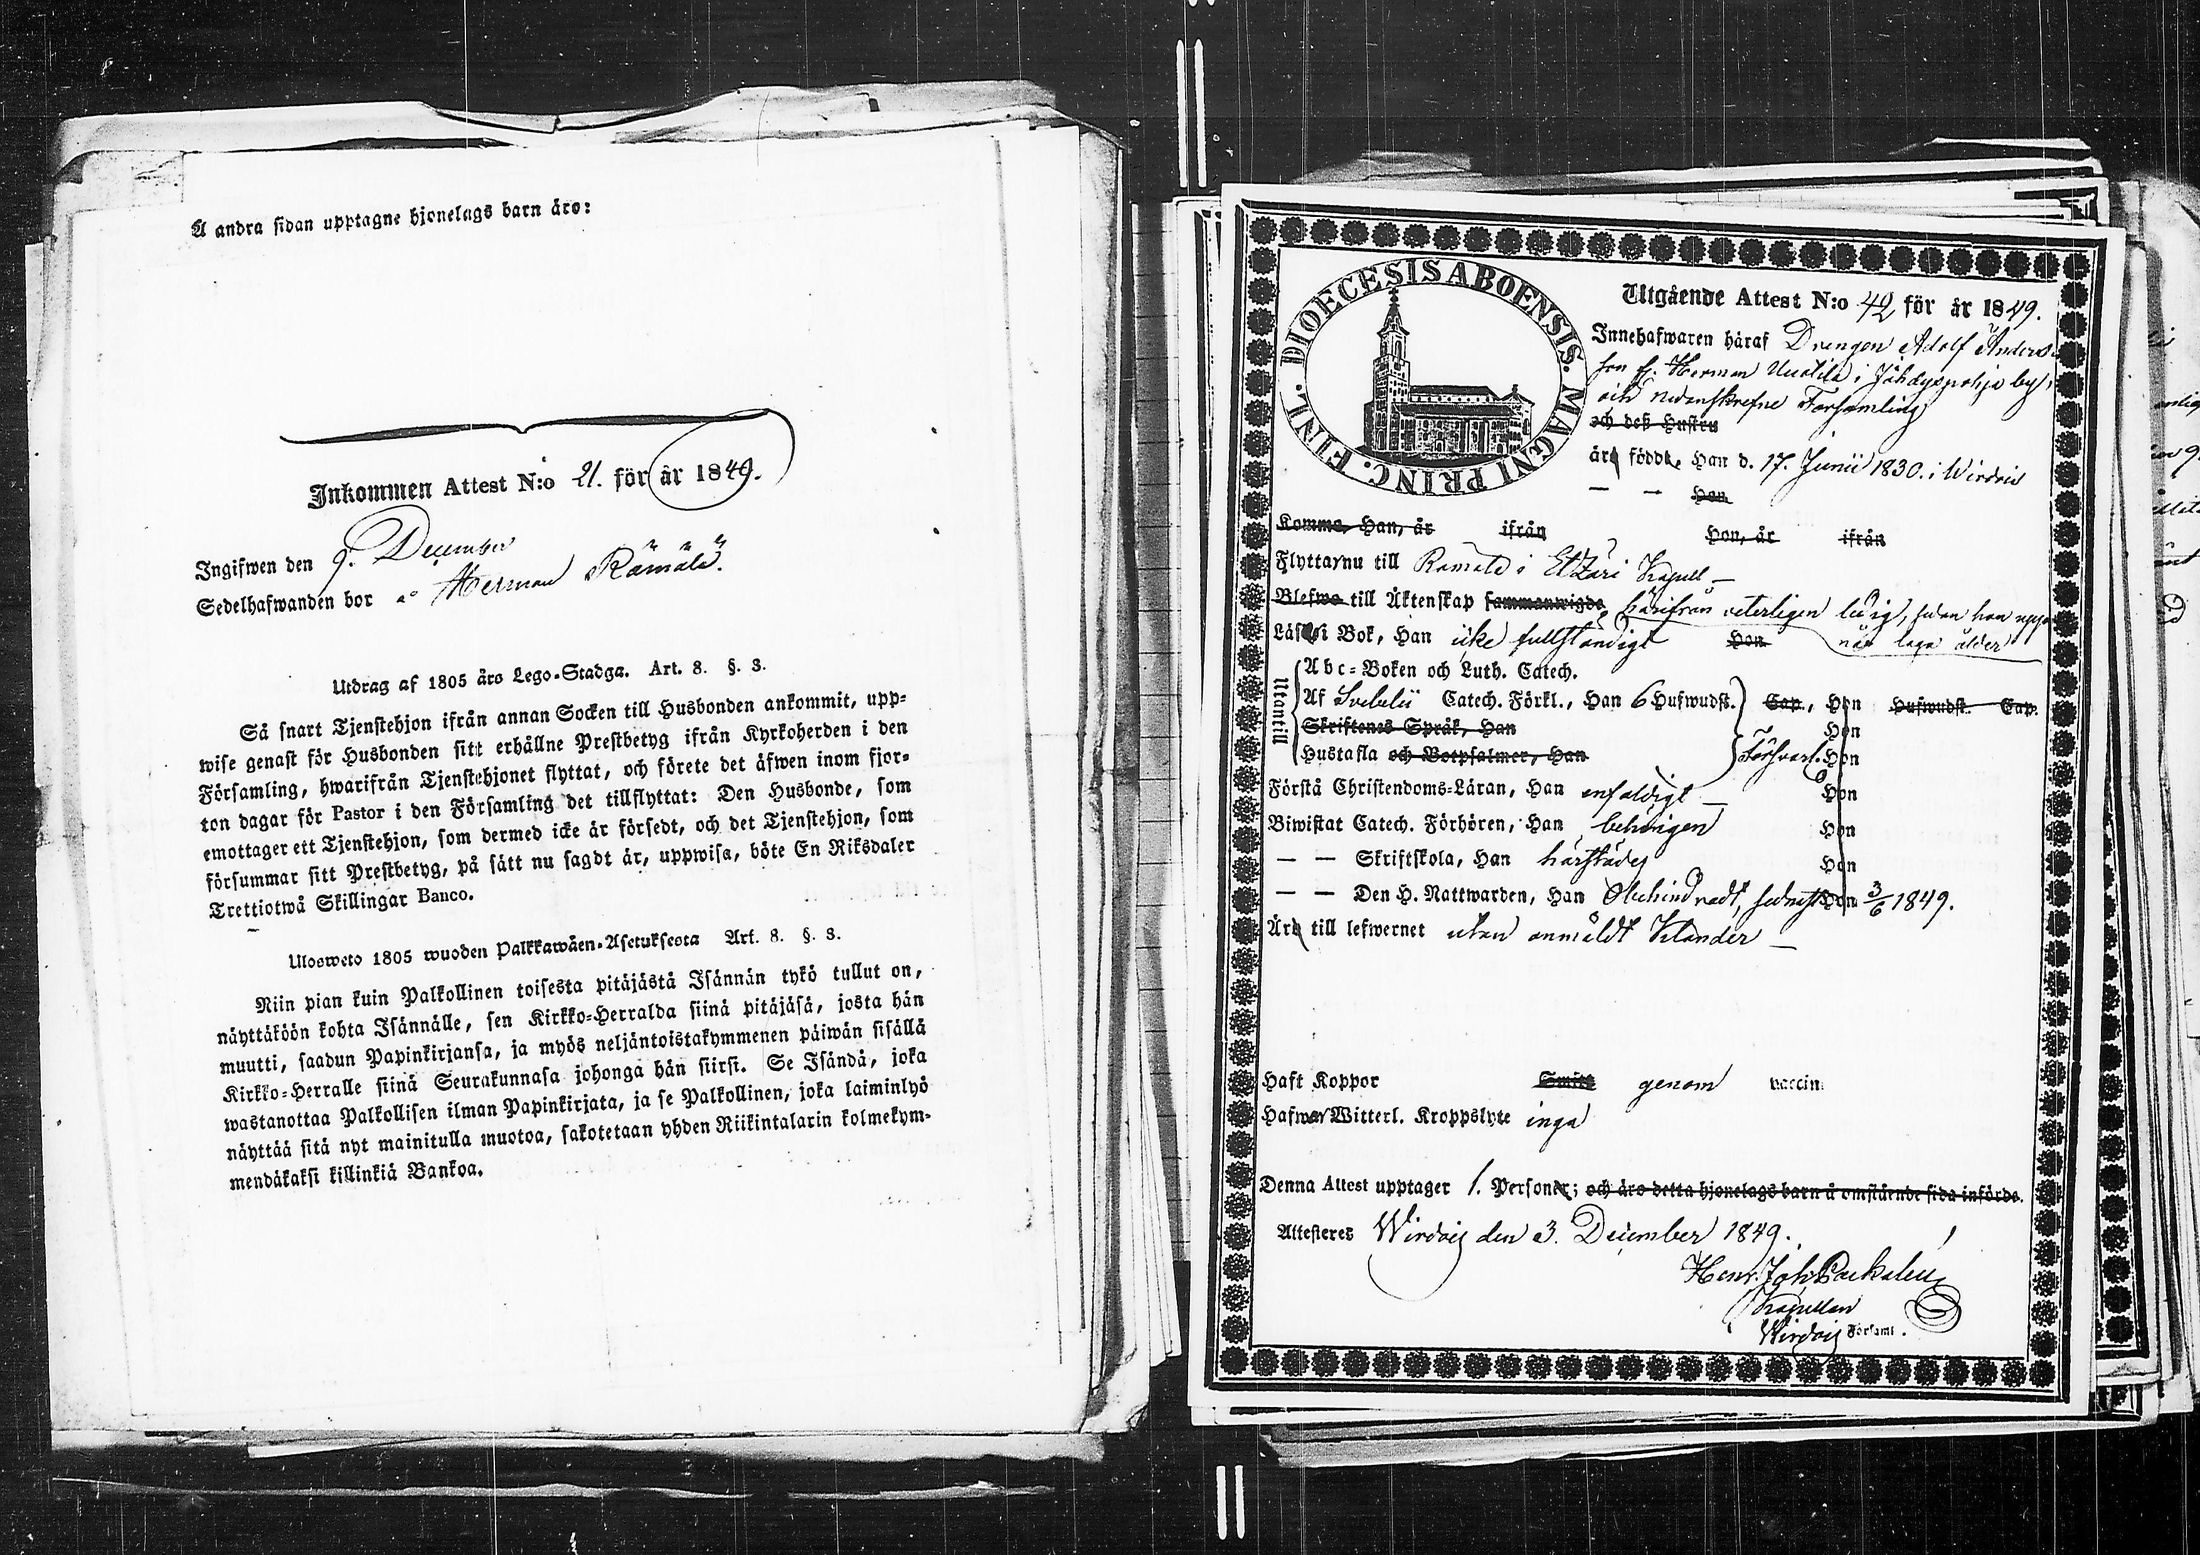 Å andra sidan upptagne hjonelags barn äro:
Inkommen Attest N:o 21. för år 1849.
Ingifwen den 9. December
Sedelhafwanden bor Herman Rämälä.
Utdrag af 1805 års Lego-Stadga. Art. 8. §. 3.
Så snart Tjenstehjon ifrån annan Socken till Husbonden ankommit, upp-
wise genast för Husbonden sitt erhållne Prestbetyg ifrån Kyrkoherden i den
Församling, hwarifrån Tjenstehjonet flyttat, och förete det äfwen inom fjor-
ton dagar för Pastor i den Församling det tillflyttat: Den Husbonde, som
emottager ett Tjenstehjon, som dermed icke är försedt, och det Tjenstehjon, som
försummar sitt Prestbetyg, på sätt nu sagdt är, uppwisa, böte En Riksdaler
Trettiotwå Skillingar Banco.
Ulosweto 1805 wuoden Palkkawäen-Asetuksesta Art. 8. §. 3.
Niin pian kuin Palkollinen toisesta pitäjästä Isännän tykö tullut on,
näyttäköön kohta Isännälle, sen Kirkko-Herralda siinä pitäjäsä, josta hän
muutti, saadun Papinkirjansa, ja myös neljäntoistakymmenen päiwän sisällä
Kirkko-Herralle siinä Seurakunnasa johonga hän siirsi. Se Isändä, joka
wastanottaa Palkollisen ilman Papinkirjata, ja se Palkollinen, joka laiminlyö
näyttää sitä nyt mainitulla muotoa, sakotetaan yhden Riikintalarin kolmekym-
mendäkaksi killinkiä Bankoa.
DIOECESIS ABOENSIS. MAGNI PRINC. FINL.
Utgående Attest N:o 42 för år 1849.
Innehafwaren häraf Drengen Adolf Anders
son fr. Herman Uusitila i Jähdyspohja by,
och nedanskrefne Församling
och deß Hustru
äro födde, Han d. 17. Junii 1830. i Wirdois
— — Hon
Komme, Han, år ifrån Hon, år ifrån
Flyttar nu till Rämälä i Etzäri Kapell —
Blefwo till Äktenskap sammanwigde härifrån veterligen ledig, sedan han upp-
når laga ålder
Läsa i Bok, Han icke fullständigt Hon
Utantill
Abc-Boken och Luth. Catech.
Af Svebelii Catech. Förkl., Han 6 Hufwudst. Cap., Hon Hufwudst. Cap.
Skriftenes Språk, Han Hon
Hustafla och Botpsalmer, Han Försvarl. Hon
Förstå Christendoms-Läran, Han enfaldigt — Hon
Biwistat Catech. Förhören, Han behörigen Hon
— — Skriftskola, Han härstädes Hon
— — Den H. Nattwarden, Han Obehindradt, sednast Hon 3/6 1849.
Äro till lefwernet utan anmäldt Klander —
Haft Koppor Smitt genom vaccin.
Hafwa Witterl. Kroppslyte inga
Denna Attest upptager 1. Personer; och äro detta hjonelags barn å omstående sida införde.
Attesteres Wirdois den 3. December 1849.
Henr. Joh.
Kapellan
Wirdois Församl.